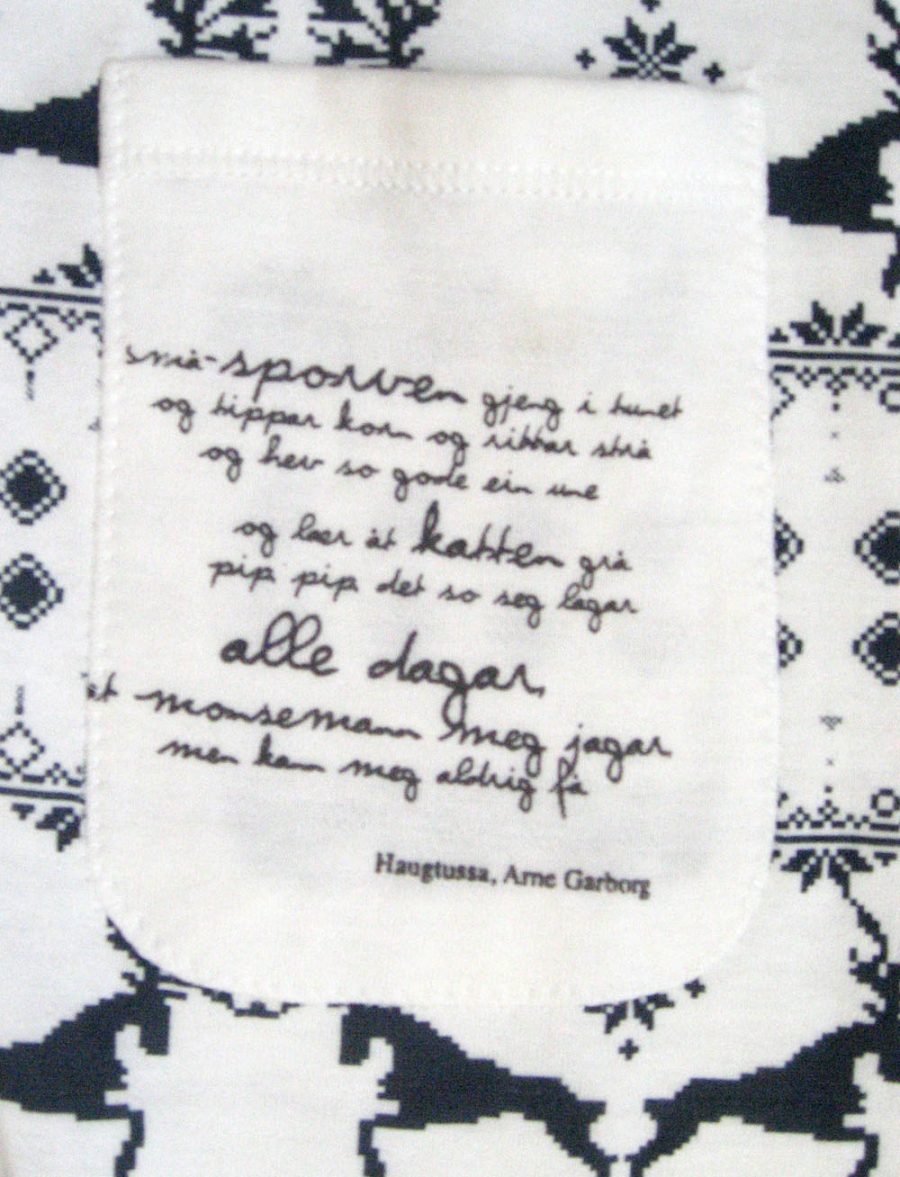 små-sporven gjeng i tunet
og tippar korn og rittar strå
og hev so gode ein une
og lær åt katten grå
pip pip det so seg lagar
alle dagar,
at monsemann meg jagar
men kann meg aldrig få
Haugtussa, Arne Garborg